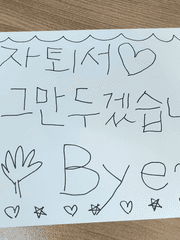 자퇴서♡
그만두겠습니
Bye~